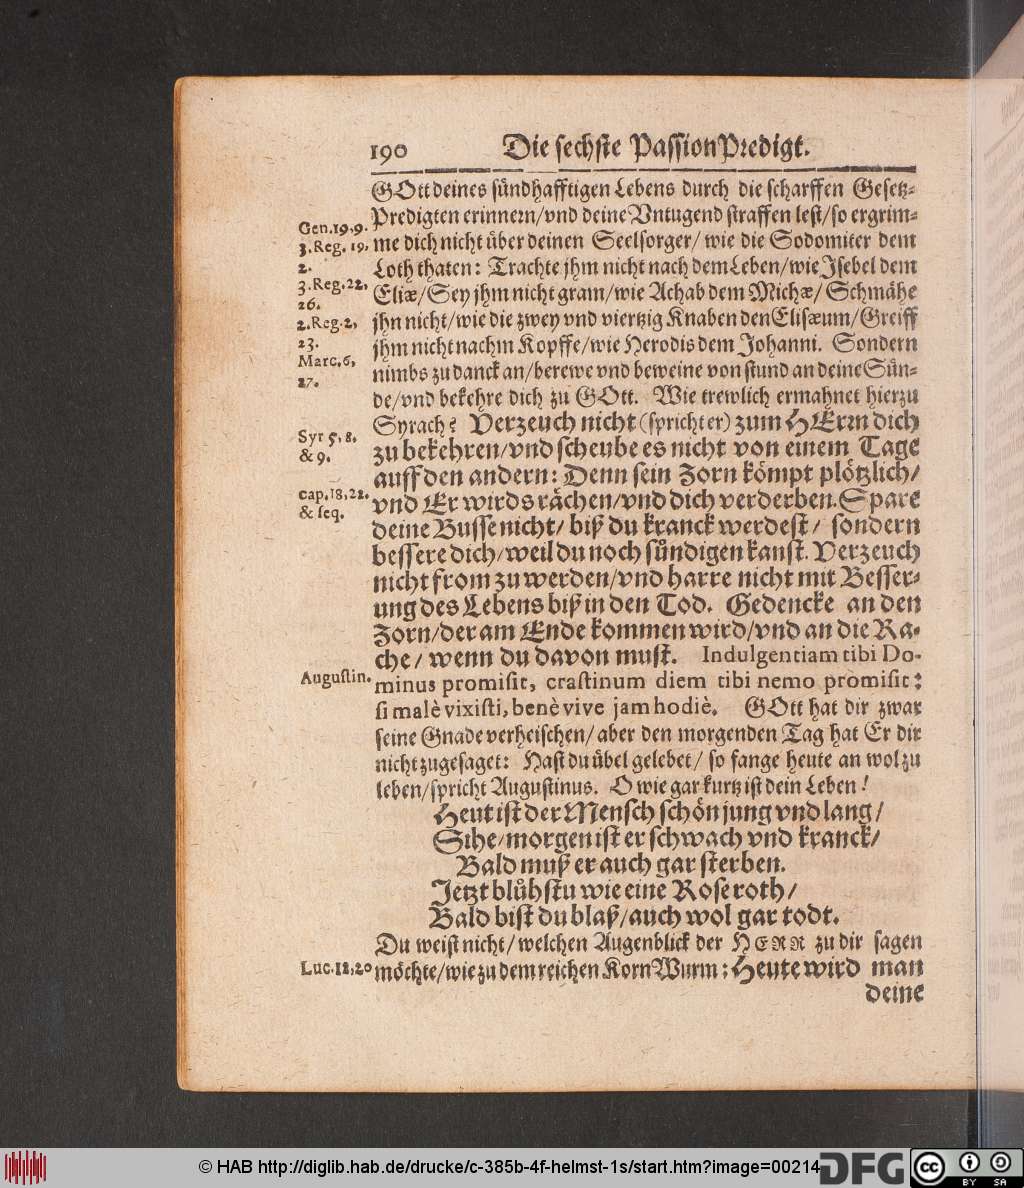 190 Die sechste PassionPredigt.
GOtt deines sündhafftigen Lebens durch die scharffen Gesetz-
Predigten erinnern/vnd deine Vntugend straffen lest/so ergrim-
Gen.19.9.
me dich nicht über deinen Seelsorger/ wie die Sodomiter dem
3.Reg.19,
2.
Loth thaten: Trachte jhm nicht nach dem Leben/wie Jsebel dem
3.Reg.22,
26.
Eliæ/Sey jhm nicht gram/wie Achab dem Michæ/ Schmähe
2.Reg.2,
23.
jhn nicht/wie die zwey vnd viertzig Knaben den Elisæum/Greiff
jhm nicht nachm Kopffe/wie Herodis dem Johanni. Sondern
Marc.6,
27.
nimbs zu danck an/berewe vnd beweine von stund an deine Sün-
de/vnd bekehre dich zu GOtt. Wie trewlich ermahnet hierzu
Syrach? Verzeuch nicht (spricht er) zum HErrn dich
Syr 5.8.
& 9.
zu bekehren/vnd scheube es nicht von einem Tage
auff den andern: Denn sein Zorn kömpt plötzlich/
cap.18,22.
& seq.
vnd Er wirds rächen/vnd dich verderben. Spare
deine Busse nicht/ biß du kranck werdest/ sondern
bessere dich/weil du noch sündigen kanst. Verzeuch
nicht from zu werden/vnd harre nicht mit Besser-
ung des Lebens biß in den Tod. Gedencke an den
Zorn/der am Ende kommen wird/vnd an die Ra-
che/ wenn du davon must. Indulgentiam tibi Do-
Augustin.
minus promisit, crastinum diem tibi nemo promisit:
si malè vixisti, benè vive jam hodiè. GOtt hat dir zwar
seine Gnade verheischen/ aber den morgenden Tag hat Er dir
nicht zugesaget: Hast du übel gelebet/ so fange heute an wol zu
leben/spricht Augustinus. O wie gar kurtz ist dein Leben!
Heut ist der Mensch schön jung vnd lang/
Sihe/morgen ist er schwach vnd kranck/
Bald muß er auch gar sterben.
Jetzt blühstu wie eine Rose roth/
Bald bist du blaß/auch wol gar todt.
Du weist nicht/ welchen Augenblick der HERR zu dir sagen
Luc.12,20
möchte/wie zu dem reichen Korn Wurm: Heute wird man
deine
© HAB http://diglib.hab.de/drucke/c-385b-4f-helmst-1s/start.htm?image=00214
DFG
cc
BY SA